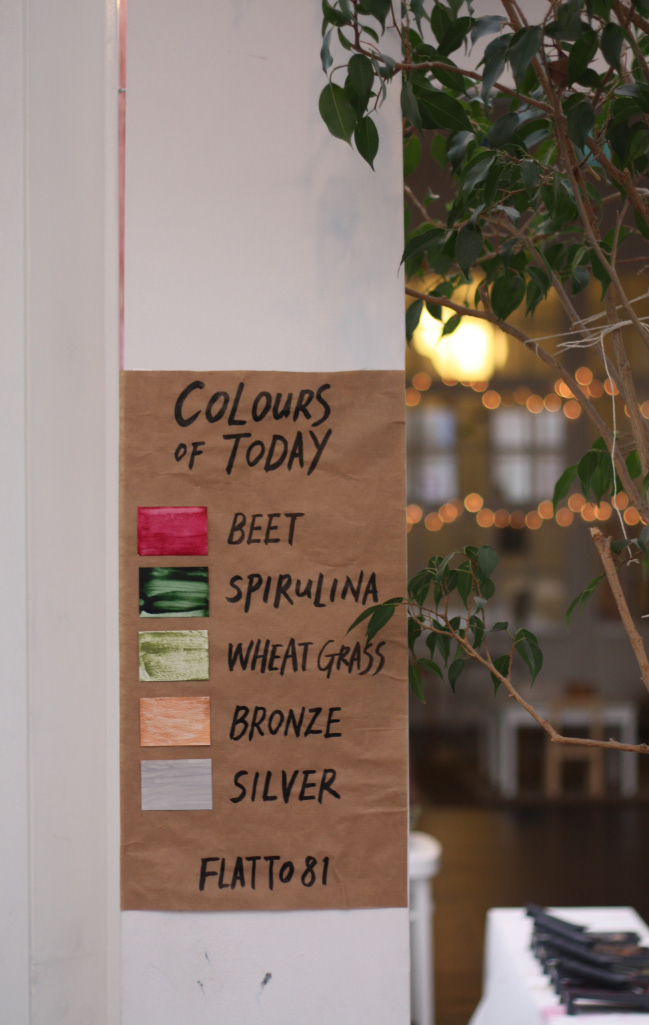 COLOURS
OF TODAY
BEET
SPIRULINA
WHEAT GRASS
BRONZE
SILVER
FLATTO 81